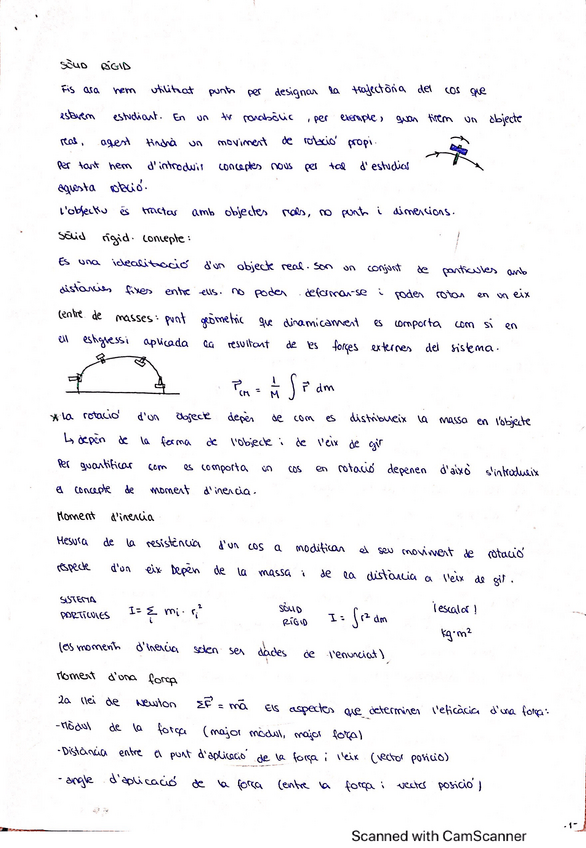 SÒLID RÍGID
Fis ara hem utilitzat punts per designar la trajectòria del cos que
estavem estudiant. En un tir parabòlic, per exemple, quan tirem un objecte
real, aquest tindrà un moviment de rotació propi.
Per tant hem d'introduir conceptes nous per tal d'estudiar
aquesta rotació.
L'objectiu és tractar amb objectes reals, no punts i dimensions.
Sòlid rígid. concepte:
És una idealització d'un objecte real. Son un conjunt de partícules amb
distàncies fixes entre ells. no poden deformar-se i poden rotar en un eix
Centre de masses: punt geòmetric que dinamicament es comporta com si en
ell estigués aplicada la resultant de les forçes externes del sistema.
r⃗CM = 1/M ∫ r⃗ dm
* La rotació d'un objecte depèn de com es distribueix la massa en l'objecte
↳ depèn de la forma de l'objecte i de l'eix de gir
Per quantificar com es comporta un cos en rotació depenen d'això s'introdueix
el concepte de moment d'inercia.
Moment d'inercia
Mesura de la resistència d'un cos a modificar el seu moviment de rotació
respecte d'un eix Depèn de la massa i de la distància a l'eix de gir.
SISTEMA PARTÍCULES I = Σi mi · ri² SÒLID RÍGID I = ∫ r² dm ¡escalar!
kg·m²
(els moments d'inercia solen ser dades de l'enunciat)
Moment d'una força
2a llei de Newton ΣF⃗ = ma⃗ Els aspectes que determinen l'eficàcia d'una força:
- Mòdul de la força (major mòdul, major força)
- Distància entre el punt d'aplicació de la força i l'eix (vector posició)
- angle d'aplicació de la força (entre la força i vector posició)
-1-
Scanned with CamScanner